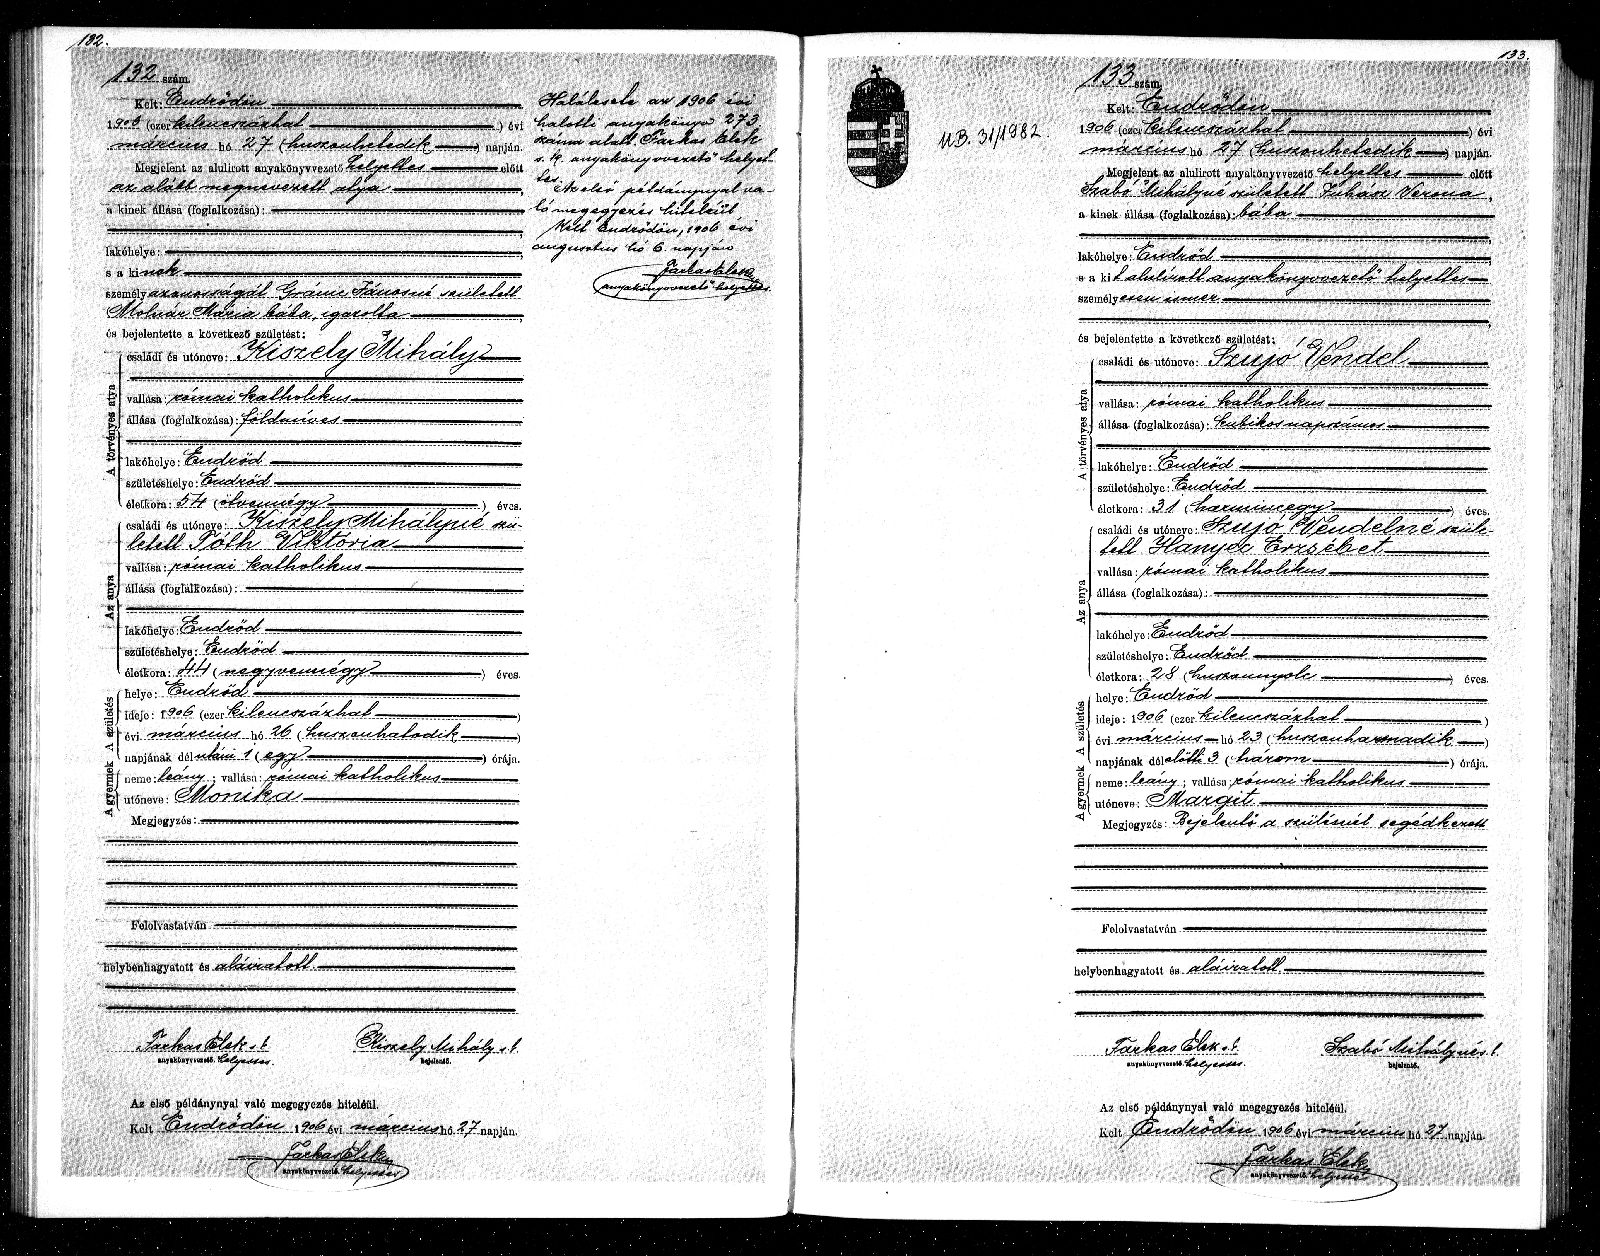 132.
132 szám.
Kelt: Endrődön
1906 (ezer kilenczszázhat) évi
március hó 27 (huszonhetedik) napján.
Megjelent az alulirott anyakönyvvezető helyettes előtt
az alább megnevezett atya
a kinek állása (foglalkozása):
lakóhelye:
s a kinek
személyazonosságát Gránic Jánosné született
Molnár Mária bába, igazolta
és bejelentette a következő születést:
A törvényes atya
családi és utóneve: Kiszely Mihály
vallása: római katholikus
állása (foglalkozása): földmíves
lakóhelye: Endrőd
születéshelye: Endrőd
életkora: 54 (ötvennégy) éves.
Az anya
családi és utóneve: Kiszely Mihályné szü-
letett Tóth Viktória
vallása: római katholikus
állása (foglalkozása):
lakóhelye: Endrőd
születéshelye: Endrőd
életkora: 44 (negyvennégy) éves.
A születés
helye: Endrőd
ideje: 1906 (ezer kilenczszázhat)
évi március hó 26 (huszonhatodik)
napjának délutáni 1 (egy) órája.
A gyermek
neme: leány; vallása: római katholikus
utóneve: Monika
Megjegyzés:
Felolvastatván
helybenhagyatott és aláiratott
Farkas Elek s. k. Kiszely Mihály s. k.
anyakönyvvezető helyettes bejelentő.
Az első példánynyal való megegyezés hiteléül.
Kelt Endrődön 1906 évi március hó 27 napján.
Farkas Elek
anyakönyvvezető helyettes
Halálesete az 1906 évi
halotti anyakönyv 273
szám alatt. Farkas Elek
s. k. anyakönyvvezető helyet-
tes
Az első példánynyal va-
ló megegyezés hiteléül
Kelt Endrődön, 1906 évi
augusztus hó 6 napján
Farkas Elek
anyakönyvvezető helyettes
133.
133 szám.
M.B. 31/1982.
Kelt: Endrődön
1906 (ezer kilenczszázhat) évi
március hó 27 (huszonhetedik) napján.
Megjelent az alulirott anyakönyvvezető helyettes előtt
Szabó Mihályné született Juhász Verona,
a kinek állása (foglalkozása): bába
lakóhelye: Endrőd
s a kit alulírott anyakönyvvezető helyettes
személyesen ismer
és bejelentette a következő születést:
A törvényes atya
családi és utóneve: Szujó Vendel
vallása: római katholikus
állása (foglalkozása): kubikos napszámos
lakóhelye: Endrőd
születéshelye: Endrőd
életkora: 31 (harmincegy) éves.
Az anya
családi és utóneve: Szujó Vendelné szüle-
tett Hanyecz Erzsébet
vallása: római katholikus
állása (foglalkozása):
lakóhelye: Endrőd
születéshelye: Endrőd
életkora: 28 (huszonnyolc) éves.
A születés
helye: Endrőd
ideje: 1906 (ezer kilenczszázhat)
évi március hó 23 (huszonharmadik)
napjának délelőtti 3 (három) órája.
A gyermek
neme: leány; vallása: római katholikus
utóneve: Margit
Megjegyzés: Bejelentő a szülésnél segédkezett
Felolvastatván
helybenhagyatott és aláiratott
Farkas Elek s. k. Szabó Mihályné s. k.
anyakönyvvezető helyettes bejelentő.
Az első példánynyal való megegyezés hiteléül.
Kelt Endrődön 1906 évi március hó 27 napján.
Farkas Elek
anyakönyvvezető helyettes